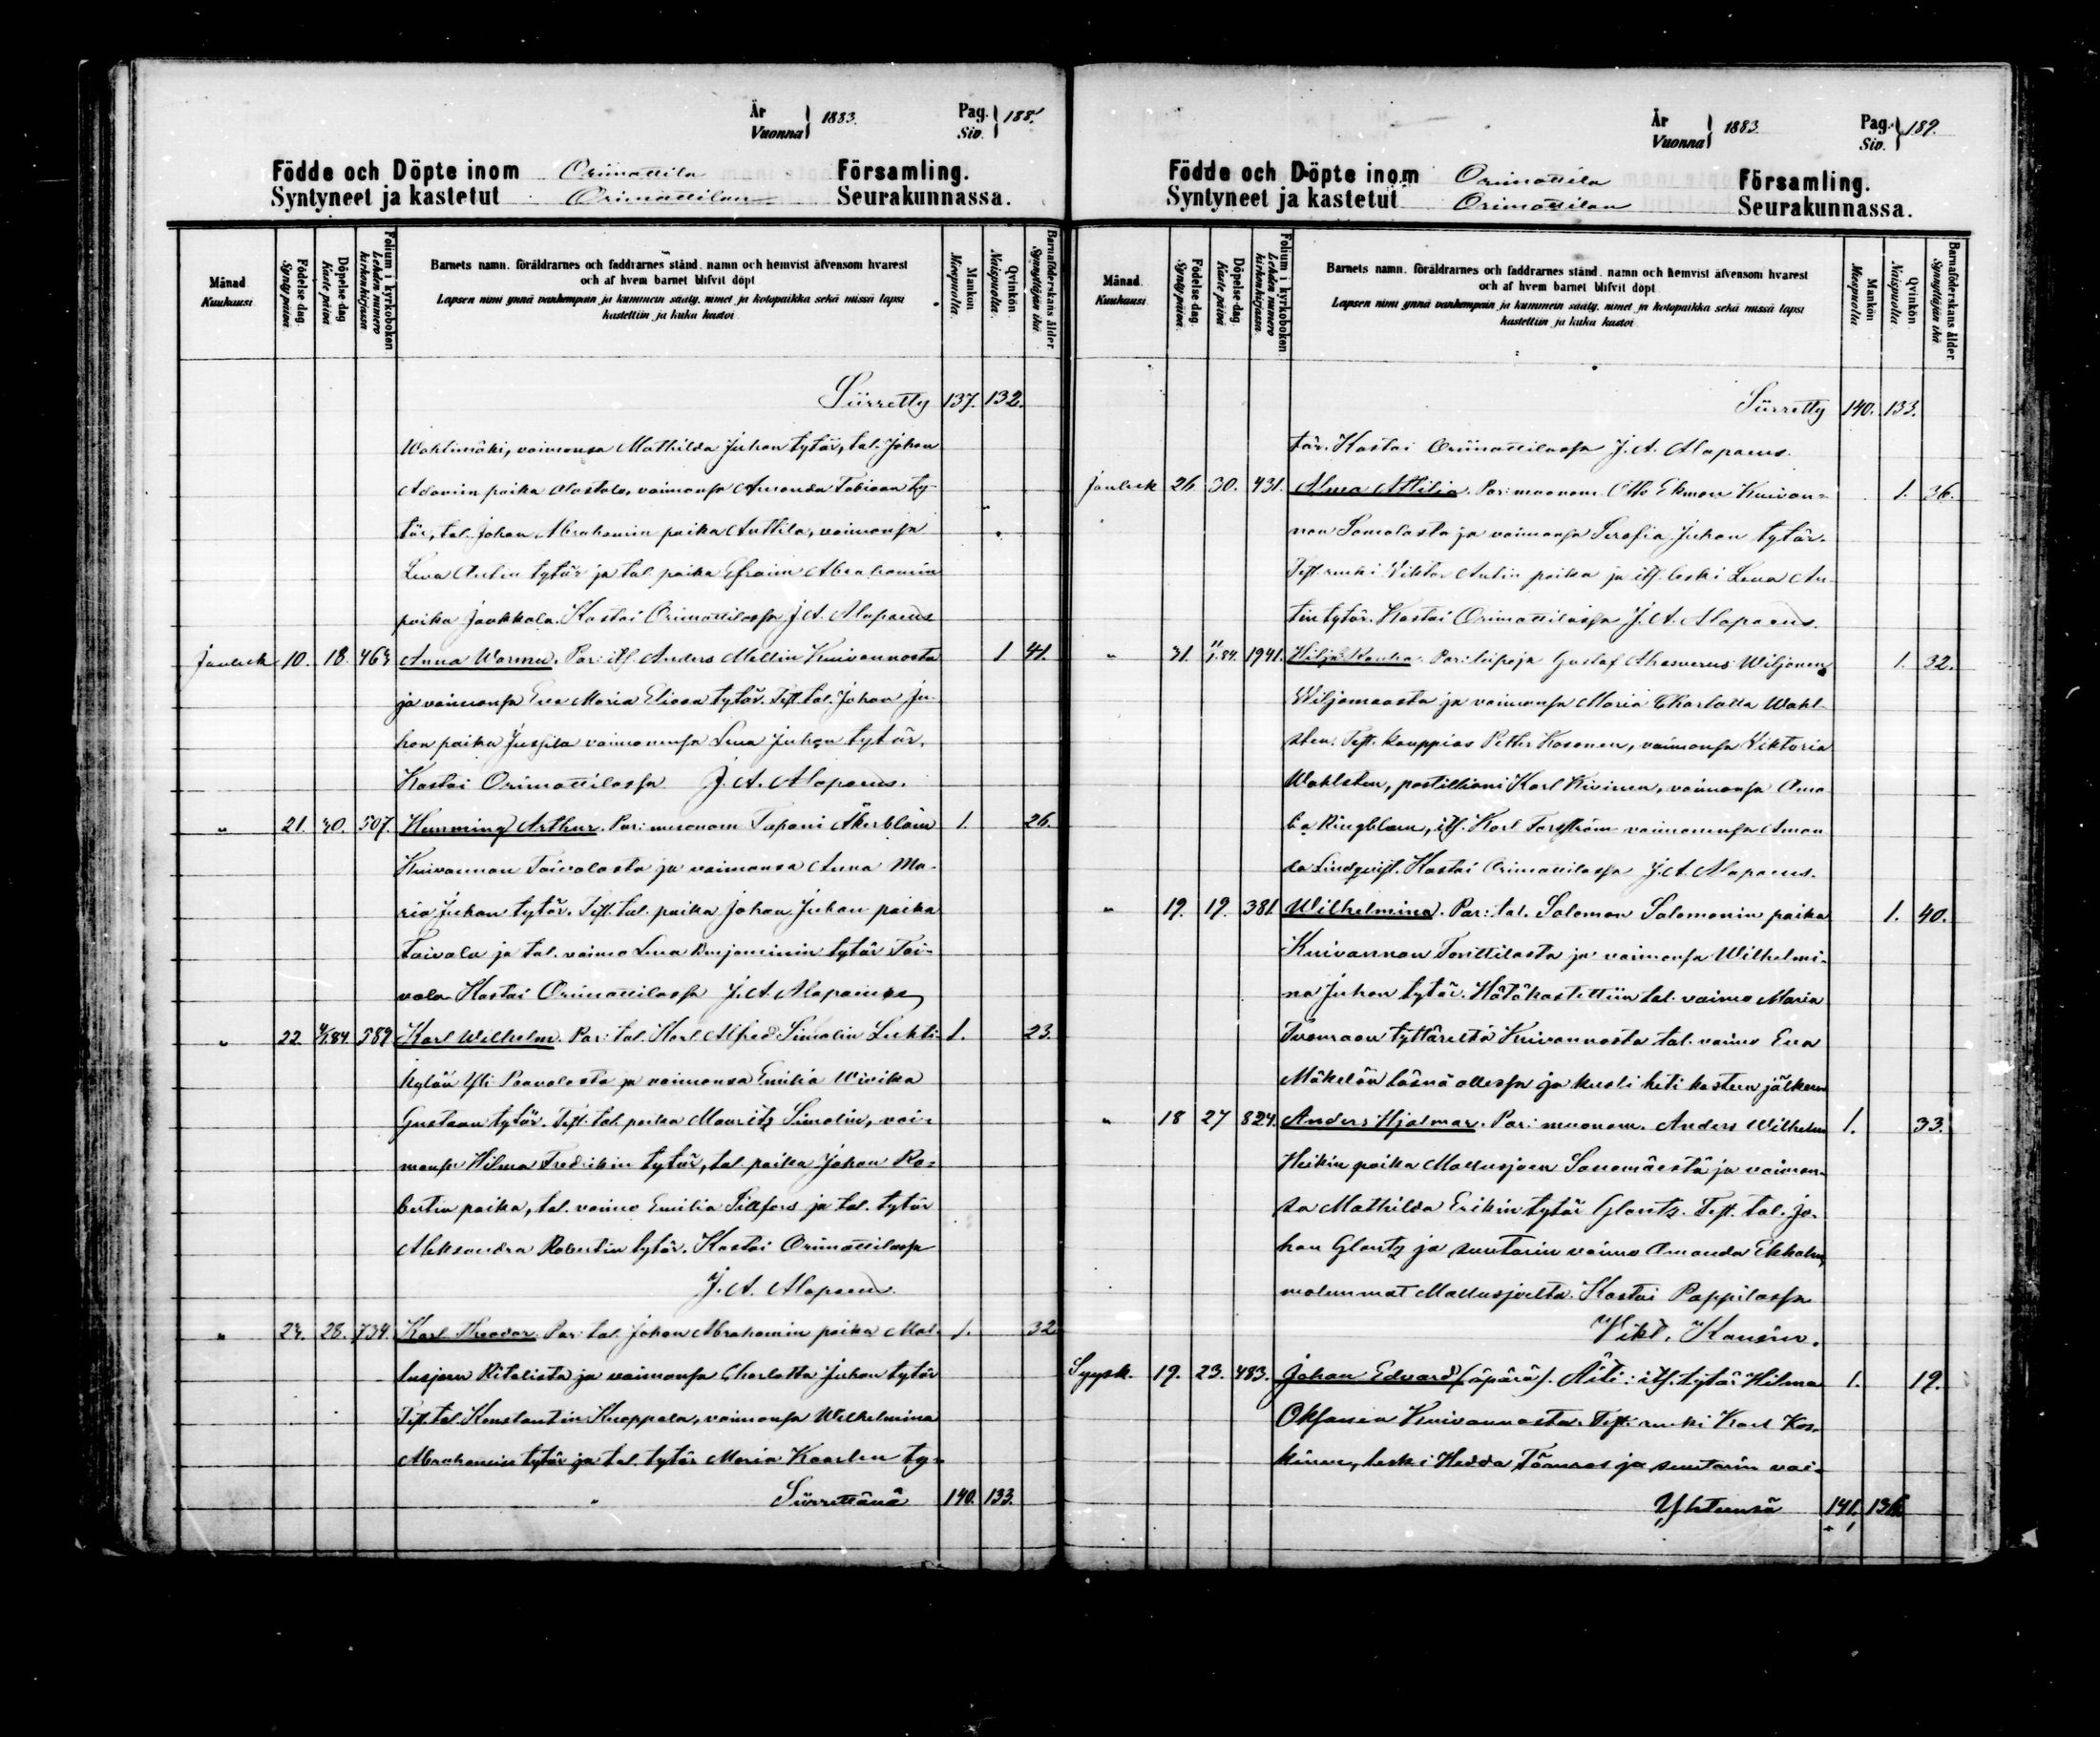 År
Vuonna } 1883.
Pag.
Siv. } 188.
Födde och Döpte inom Orimattila Församling.
Syntyneet ja kastetut Orimattilan Seurakunnassa.
Månad.
Kuukausi
Födelse dag.
Syntypäivä.
Döpelse dag
Kaste päivä
Folium i kyrkoboken
Lehden numero kirkonkirjassa
Barnets namn, föräldrarnes och faddrarnes stånd, namn och hemvist äfvensom hvarest
och af hvem barnet blifvit döpt
Lapsen nimi ynnä vanhempain ja kummein sääty, nimet ja kotopaikka sekä missä lapsi
kastettiin ja kuka kastoi.
Mankön
Miespuolia.
Qvinkön
Naispuolia.
Barnaföderskans ålder.
Synnyttäjän ikä
Siirretty 137. 132.
Wahlimäki, vaimonsa Mathilda Juhan tytär, tal. Johan
Adamin poika Alastalo, vaimonsa Amanda Fabiaan ty-
tär, tal. Johan Abrahamin poika Anttila, vaimonsa
Lena Antin tytär ja tal. poika Efraim Abrahamin
poika Jaakkola. Kastoi Orimattilassa J. A. Alopaeus
Jouluk 10. 18. 463 Anna Warma. Par: its. Anders Mellin Kuivannosta 1 41.
ja vaimonsa Eva Maria Eliaa tytär. Test. tal. Johan Ju-
han poika Jussila vaimonensa Lena Juhan tytär.
Kastoi Orimattilassa J. A. Alopaeus.
" 21. 30. 507. Hemming Arthur. Par: muonam Tapani Åkerblom 1. 26.
Kuivannon Toivolasta ja vaimonsa Anna Ma-
ria Juhan tytär. Test. tal. poika Johan Juhan poika
Toivola ja tal. vaimo Lena Benjaminin tytär Toi-
vola Kastoi Orimattilassa J. A. Alopaeus
" 22 84. 589 Karl Wilhelm. Par: tal. Karl Alfred Simolin Luhti- 1. 23.
kylän Yli Paavolasta ja vaimonsa Emilia Wivika
Gustaan tytär. Test. tal. poika Mauritz Simolin, vai-
monsa Hilma Fredrikin tytär, tal. poika Johan Ro-
bertin poika, tal. vaimo Emilia Sillfors ja tal. tytär
Aleksandra Robertin tytär. Kastoi Orimattilassa
J. A. Alopaeus.
" 24. 28. 734. Karl Theodor. Par: tal. Johan Abrahamin poika Mal- 1. 32
lusjoen Ritalista ja vaimonsa Charlotta Juhan tytär
Test. tal. Konstantin Knoppala, vaimonsa Wilhelmina
Abrahamin tytär ja tal. tytär Maria Kaarlen ty-
Siirrettävä 140. 133.
År
Vuonna } 1883.
Pag.
Siv. } 189.
Födde och Döpte inom Orimattila Församling.
Syntyneet ja kastetut Orimattilan Seurakunnassa.
Månad.
Kuukausi
Födelse dag.
Syntypäivä.
Döpelse dag
Kaste päivä
Folium i kyrkoboken
Lehden numero kirkonkirjassa
Barnets namn, föräldrarnes och faddrarnes stånd, namn och hemvist äfvensom hvarest
och af hvem barnet blifvit döpt
Lapsen nimi ynnä vanhempain ja kummein sääty, nimet ja kotopaikka sekä missä lapsi
kastettiin ja kuka kastoi
Mankön
Miespuolia
Qvinkön
Naispuolia.
Barnaföderskans ålder.
Synnyttäjän ikä.
Siirretty 140. 133.
tär. Kastoi Orimattilassa J. A. Alopaeus.
Jouluk 26 30. 431. Alma Attilia. Par: muonam. Otto Ekman Kuivan- 1. 36.
non Pomolasta ja vaimonsa Serafia Juhan tytär.
Test. renki Viktor Antin poika ja its. leski Lena An-
tin tytär. Kastoi Orimattilassa J. A. Alopaeus.
" 31. 84. 1941. Hilja Par: Gustaf Ahasverus Wiljanen 1. 32.
Wiljamaasta ja vaimonsa Maria Charlotta Wahl-
sten. Test. kauppias Petter Kosonen, vaimonsa Viktoria
Wahlsten, postilliooni Karl Kivinen, vaimonsa Ama-
lia Ringblom, its. Karl Forsström vaimonensa Aman-
da Lindqvist. Kastoi Orimattilassa J. A. Alopaeus.
" 19. 19. 381. Wilhelmina. Par: tal. Salomon Salomonin poika 1. 40.
Kuivannon Torittilasta ja vaimonsa Wilhelmi-
na Juhan tytär. Hätäkastettiin tal. vaimo Maria
Tuomaan tyttäreltä Kuivannosta tal. vaimo Eva
Mäkelän läsnä ollessa ja kuoli heti kasteen jälkeen
" 18 27 824. Anders Hjalmar. Par: muonam. Anders Wilhelm 1. 33.
Heikin poika Mallusjoen Sanomäestä ja vaimon-
sa Mathilda Erikin tytär Glantz. Test. tal. Jo-
han Glantz ja suutarin vaimo Amanda Ekholm,
molemmat Mallusjoelta. Kastoi Pappilassa
Vikt. Kausin.
Syysk. 19. 23. 483. Johan Edvard (äpärä). Äiti: its. tytär Hilma 1. 19.
Oksanen Kuivannosta. Test: renki Karl Kos-
kinen, leski Hedda Tömros ja suutarin vai-
Yhteensä 141. 136.